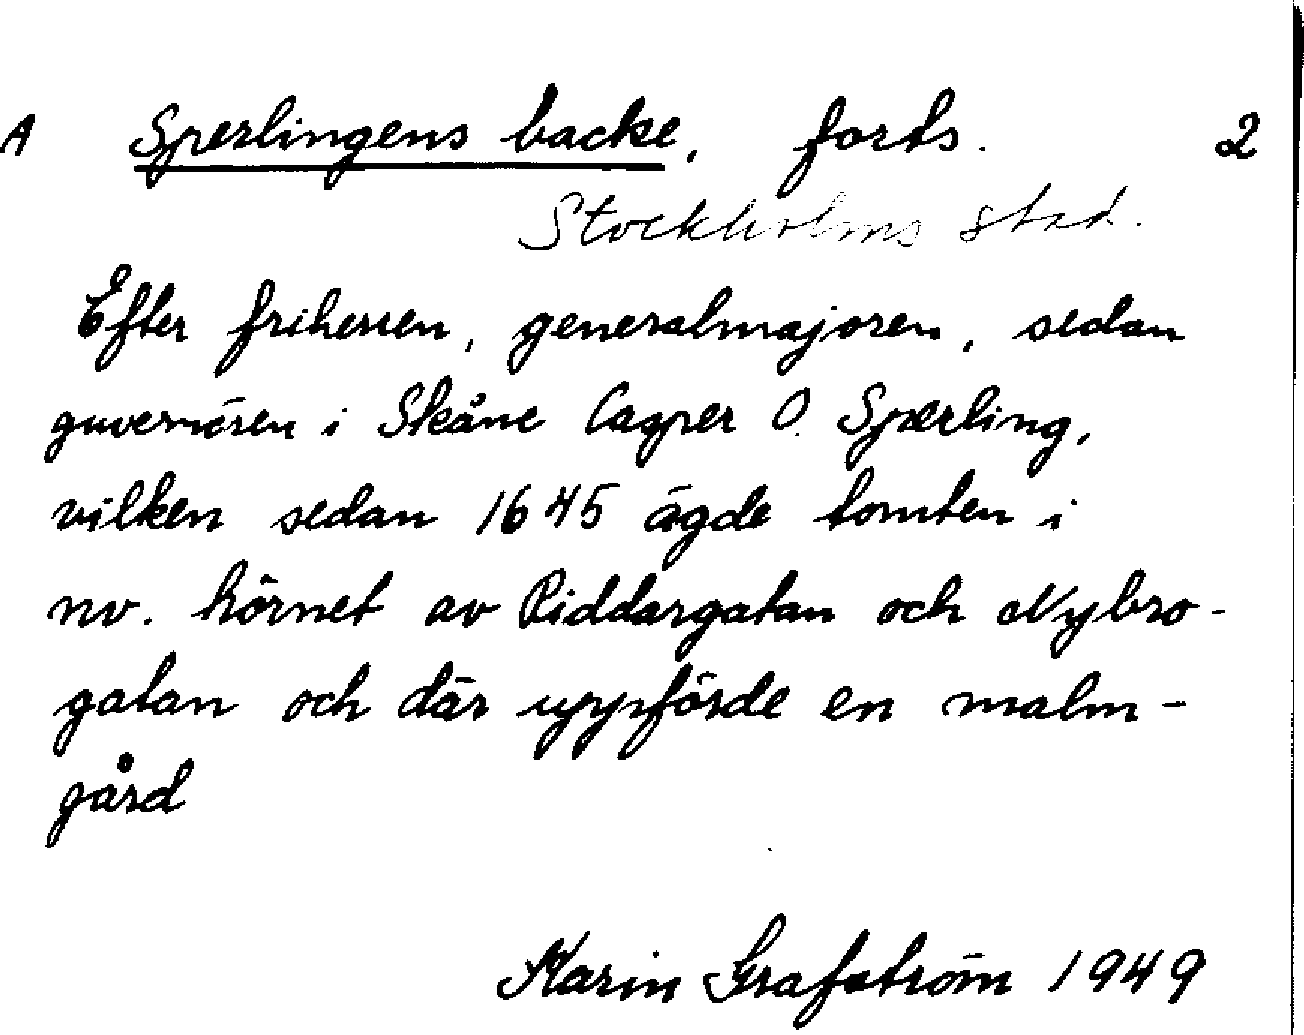 A Sperlingens backe, forts. 2
Stockholms stad.
Efter friherren, generalmajoren, sedan
guvernören i Skåne Casper O. Sperling,
vilken sedan 1645 ägde tomten i
nv. hörnet av Riddargatan och Nybro-
gatan och där uppförde en malm-
gård
Karin Grafström 1949